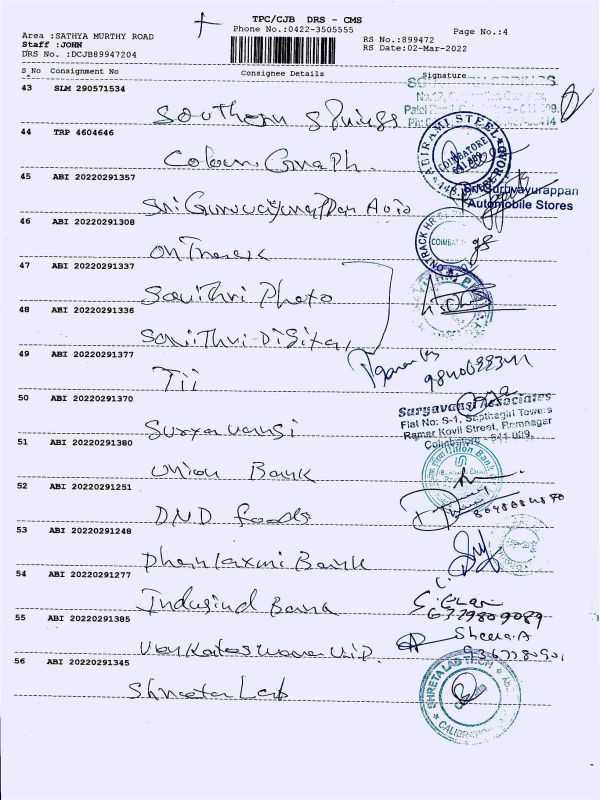 TPC/CJB DRS - CMS
Phone No.:0422-3505555
Page No.:4
Area :SATHYA MURTHY ROAD
Staff :JOHN
DRS No. :DCJB89947204
RS No.:899472
RS Date:02-Mar-2022
S_No Consignment No Consignee Details Signature
43 SLM 290571534
Southern Springs
44 TRP 4604646
ABIRAMI STEEL
COIMBATORE
45 ABI 20220291357
Sri Guruvayurappan Auto
Sri Guruvayurappan
Automobile Stores
46 ABI 20220291308
On Track
ONTRACK HR
47 ABI 20220291337
Savithri Photo
48 ABI 20220291336
Savithri Digital
49 ABI 20220291377
TII
50 ABI 20220291370
Suryavansi
Suryavansi Associates
Flat No: S-1, Sapthagiri Towers
Ramar Kovil Street, Ramnagar
Coimbatore - 641 009.
51 ABI 20220291380
Union Bank
Union Bank
52 ABI 20220291251
DND foods
53 ABI 20220291248
Dhanlaxmi Bank
54 ABI 20220291277
Indusind Bank
6379809089
55 ABI 20220291385
Sheela.A
56 ABI 20220291345
Shreeta Lab
SHRETA LAB TECH
CALIBRATION